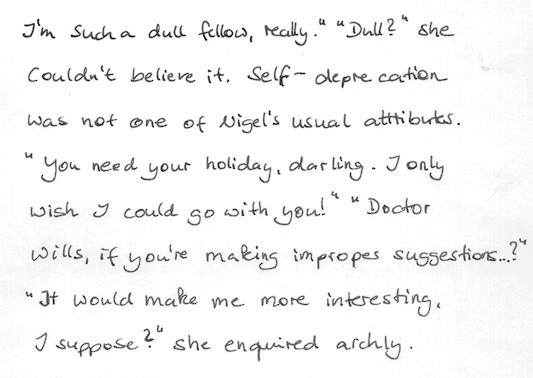 I'm such a dull fellow, really." "Dull?" she
couldn't believe it. Self-deprecation
was not one of Nigel's usual attributes.
"You need your holiday, darling. I only
wish I could go with you!" "Doctor
Wills, if you're making improper suggestions...?"
"It would make me more interesting,
I suppose?" she enquired archly.